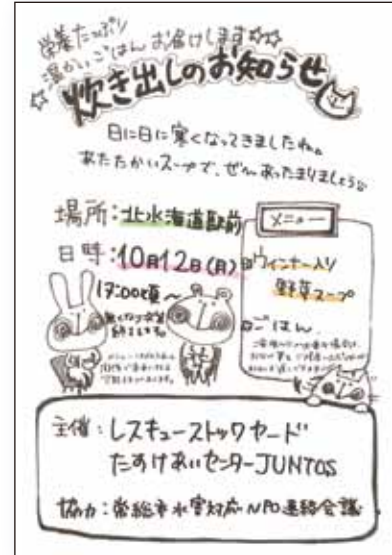 栄養たっぷり
温かいごはんお届けします☆☆
炊き出しのお知らせ
日に日に寒くなってきましたね。
あたたかいスープで、ぜひあったまりましょう
場所:北水海道駅前
日時:10月12日(月)
17:00頃〜
無くなり次第
終了します。
メニュー
ウィンナー入り
野菜スープ
ごはん
主催:レスキューストックヤード
たすけあいセンターJUNTOS
協力:常総市水害対応NPO連絡会議